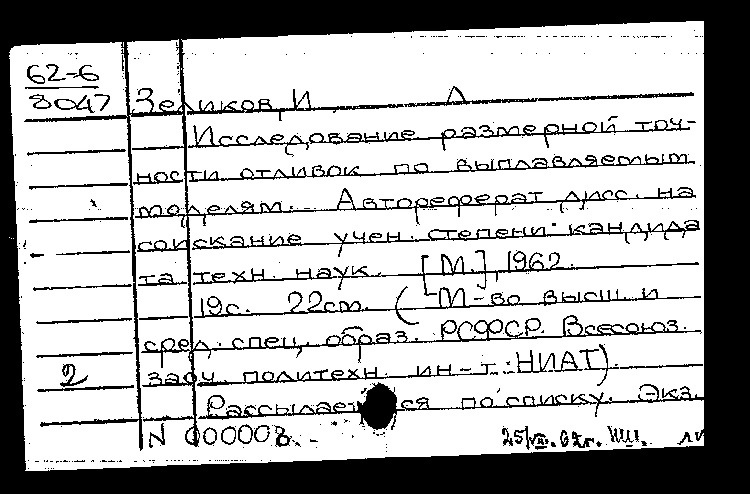 62-6
8047 Зеликов, И. Л
Исследование размерной точ-
ности отливок по выплавляемым
моделям. Автореферат дисс. на
соискание учен. степени кандида
та техн. наук. [М.], 1962.
19с. 22см. (М-во высш. и
сред. спец. образ. РСФСР. Всесоюз.
2 заоч. политехн. ин-т. НИАТ).
Рассылается по списку. Экз.
N 000008.